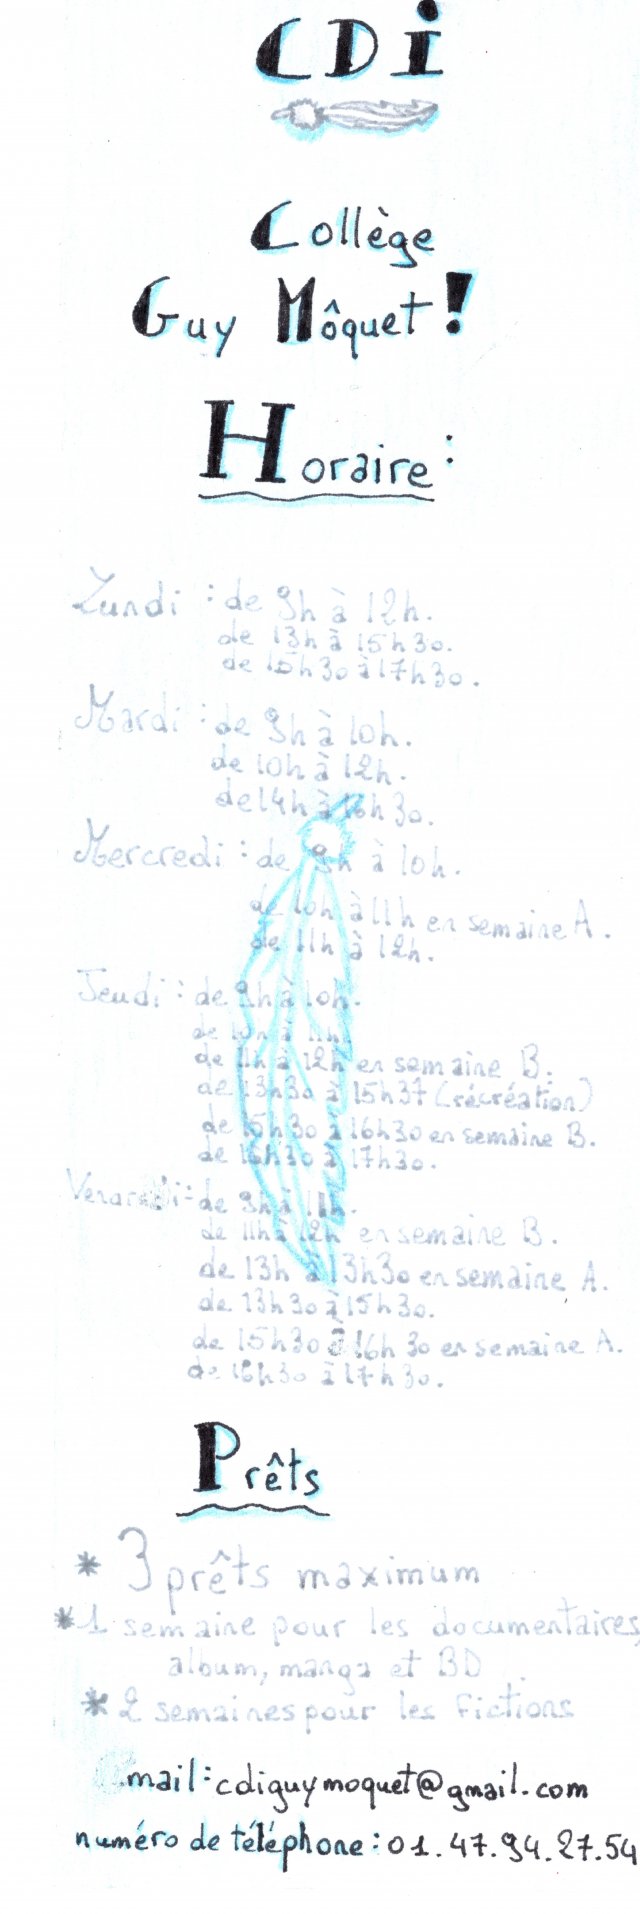 CDi
Collège
Guy Môquet !
Horaire :
Lundi : de 9h à 12h.
de 13h à 15h30.
de 15h30 à 17h30.
Mardi : de 9h à 10h.
de 10h à 12h.
de 14h à 16h30.
Mercredi : de 9h à 10h.
de 10h à 11h en semaine A.
de 11h à 12h.
Jeudi : de 9h à 10h.
de 10h à 11h.
de 11h à 12h en semaine B.
de 13h30 à 15h37 (récréation)
de 15h30 à 16h30 en semaine B.
de 16h30 à 17h30.
Vendredi : de 9h à 11h.
de 11h à 12h en semaine B.
de 13h à 13h30 en semaine A.
de 13h30 à 15h30.
de 15h30 à 16h30 en semaine A.
de 16h30 à 17h30.
Prêts
* 3 prêts maximum
* 1 semaine pour les documentaires,
album, manga et BD
* 2 semaines pour les fictions
mail : cdiguymoquet@gmail.com
numéro de téléphone : 01.47.94.27.54